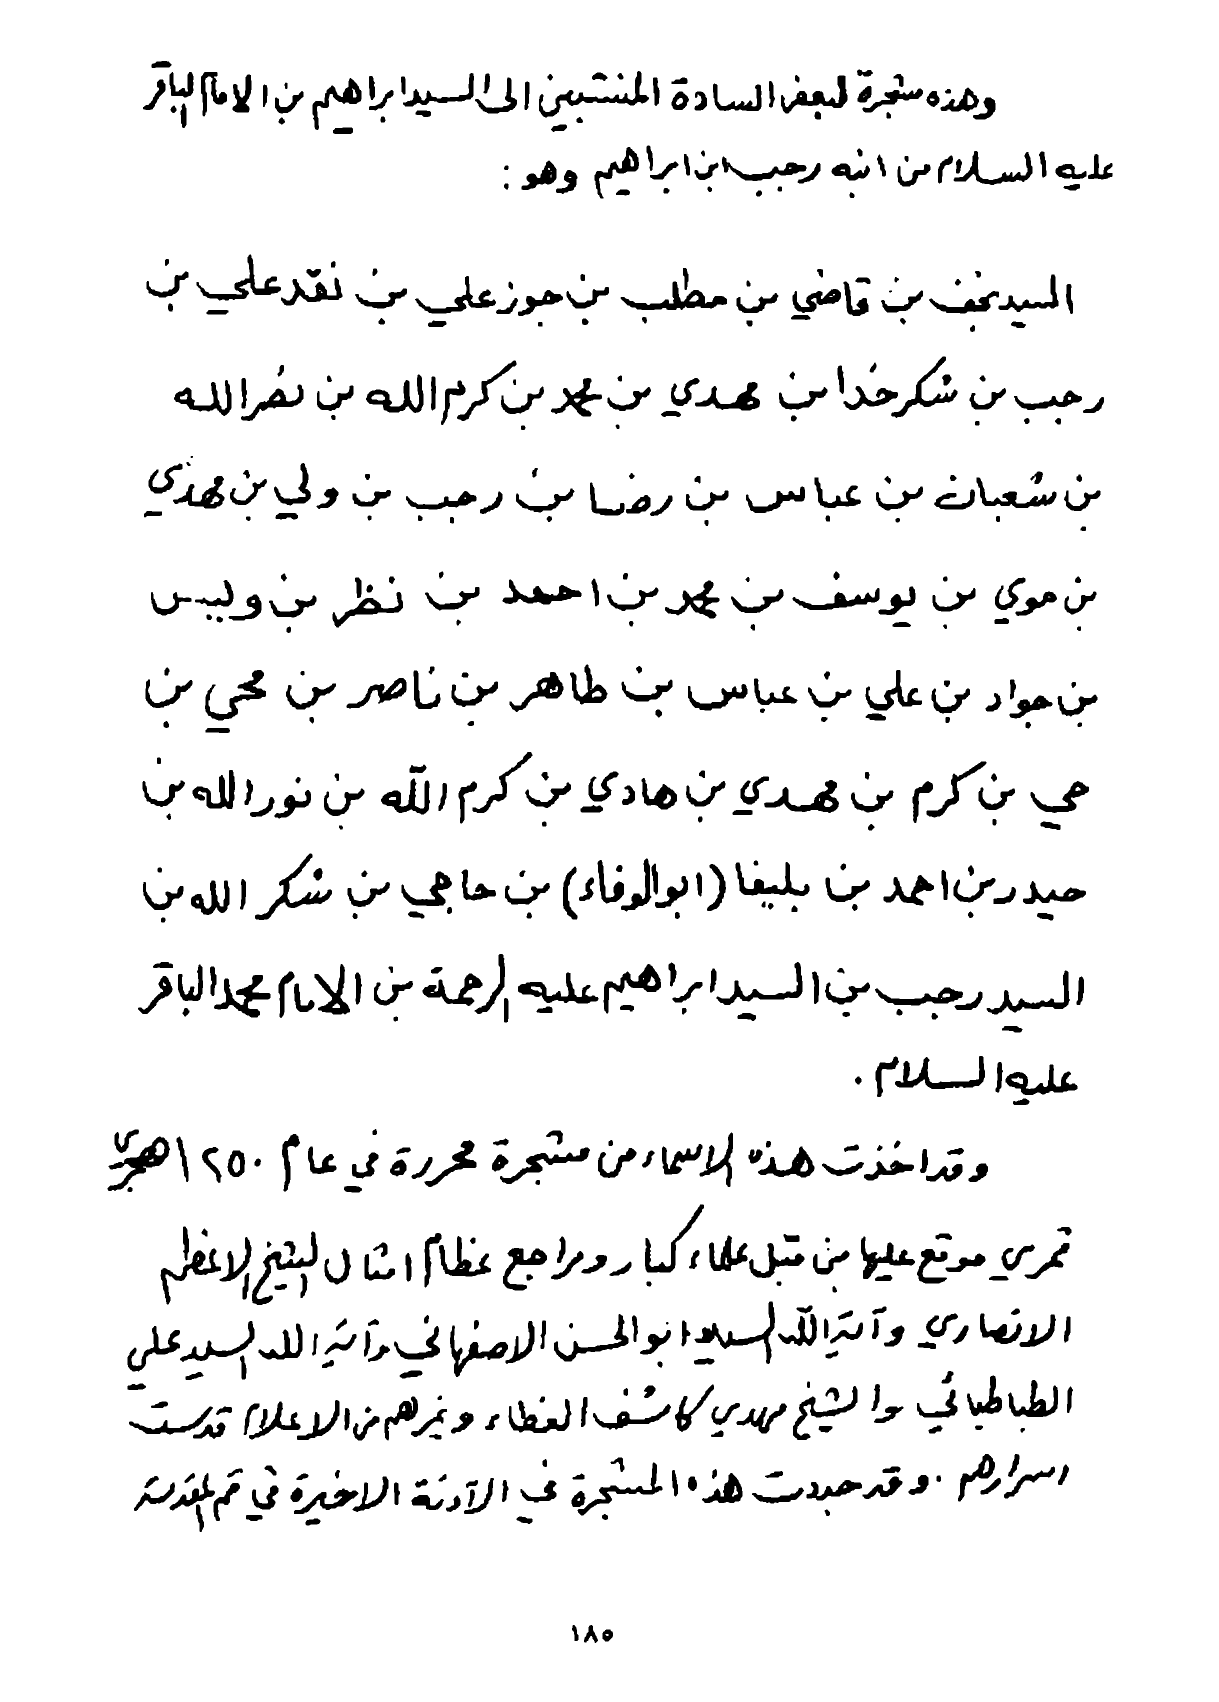 وهذه شجرة لبعض السادة المنتسبين الى السيد ابراهيم بن الامام الباقر
عليه السلام من ابنه رجب ابن ابراهيم وهو :
السيد نجف بن قاضي بن مطلب بن جوزعلي بن نقدعلي بن
رجب بن شكرخدا بن مهدي بن محمد بن كرم الله بن نصرالله
بن شعبان بن عباس بن رضا بن رجب بن ولي بن مهدي
بن موي بن يوسف بن محمد بن احمد بن نظر بن وليس
بن جواد بن علي بن عباس بن طاهر بن ناصر بن محي بن
حي بن كرم بن مهدي بن هادي بن كرم الله بن نورالله بن
حيدر بن احمد بن بليفا (ابوالوفاء) بن حاجي بن شكر الله بن
السيد رجب بن السيد ابراهيم عليه الرحمة بن الامام محمد الباقر
عليه السلام .
وقد اخذت هذه الاسماء من مشجرة محررة في عام ١٢٥٠ هجري
قمري موقع عليها من قبل علماء كبار ومراجع عظام امثال الشيخ الاعظم
الانصاري وآية الله السيد ابوالحسن الاصفهاني وآية الله السيد علي
الطباطبائي والشيخ مهدي كاشف الغطاء وغيرهم من الاعلام قدست
اسرارهم . وقد جددت هذه المشجرة في الآونة الاخيرة في قم المقدسة
١٨٥